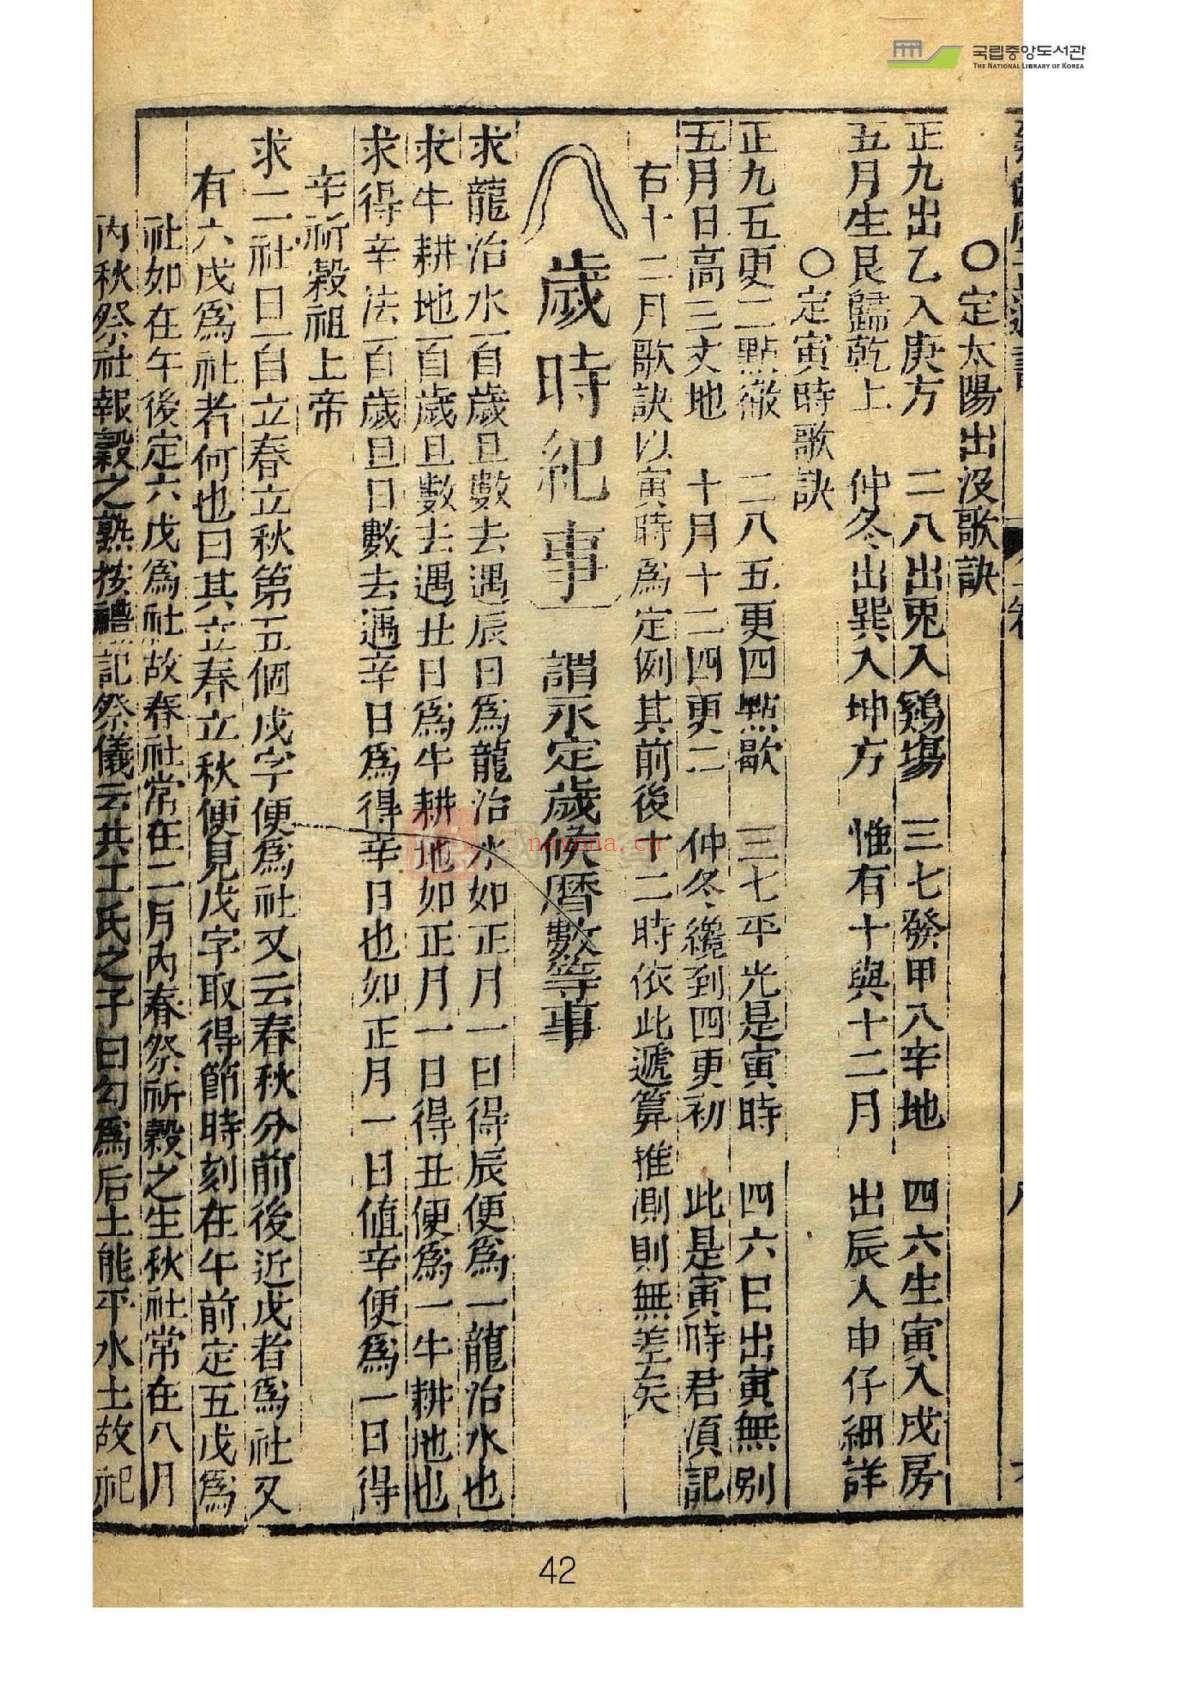 국립중앙도서관
THE NATIONAL LIBRARY OF KOREA
○定太陽出没歌訣
正九出乙入庚方 二八出兎入鷄塲 三七發甲入辛地 四六生寅入戌房
五月生艮歸乾上 仲冬出巽入坤方 惟有十與十二月 出辰入申仔細詳
○定寅時歌訣
正九五更二點徹 二八五更四㸃歇 三七平光是寅時 四六日出寅無别
五月日高三丈地 十月十二四更二 仲冬纔到四更初 此是寅時君湏記
右十二月歌訣以寅時爲定例其前後十二時依此遞算推測則無差矣
歲時紀事 謂永定歲候曆數等事
求龍治水一自歲旦數去遇辰日爲龍治水如正月一日得辰便爲一龍治水也
求牛耕地一自歲旦數去遇丑日爲牛耕地如正月一日得丑便爲一牛耕地也
求得辛法一自歲旦日數去遇辛日爲得辛日也如正月一日值辛便爲一日得
辛祈穀祖上帝
求二社日一自立春立秋第五個戊字便爲社又云春秋分前後近戊者爲社又
有六戊爲社者何也曰其立春立秋便見戊字取得節時刻在午前定五戊爲
社如在午後定六戊爲社故春社常在二月内春祭祈穀之生秋社常在八月
内秋祭社報穀之熟按禮記祭儀云共工氏之子曰勾爲后土能平水土故祀
nayona.cn
42